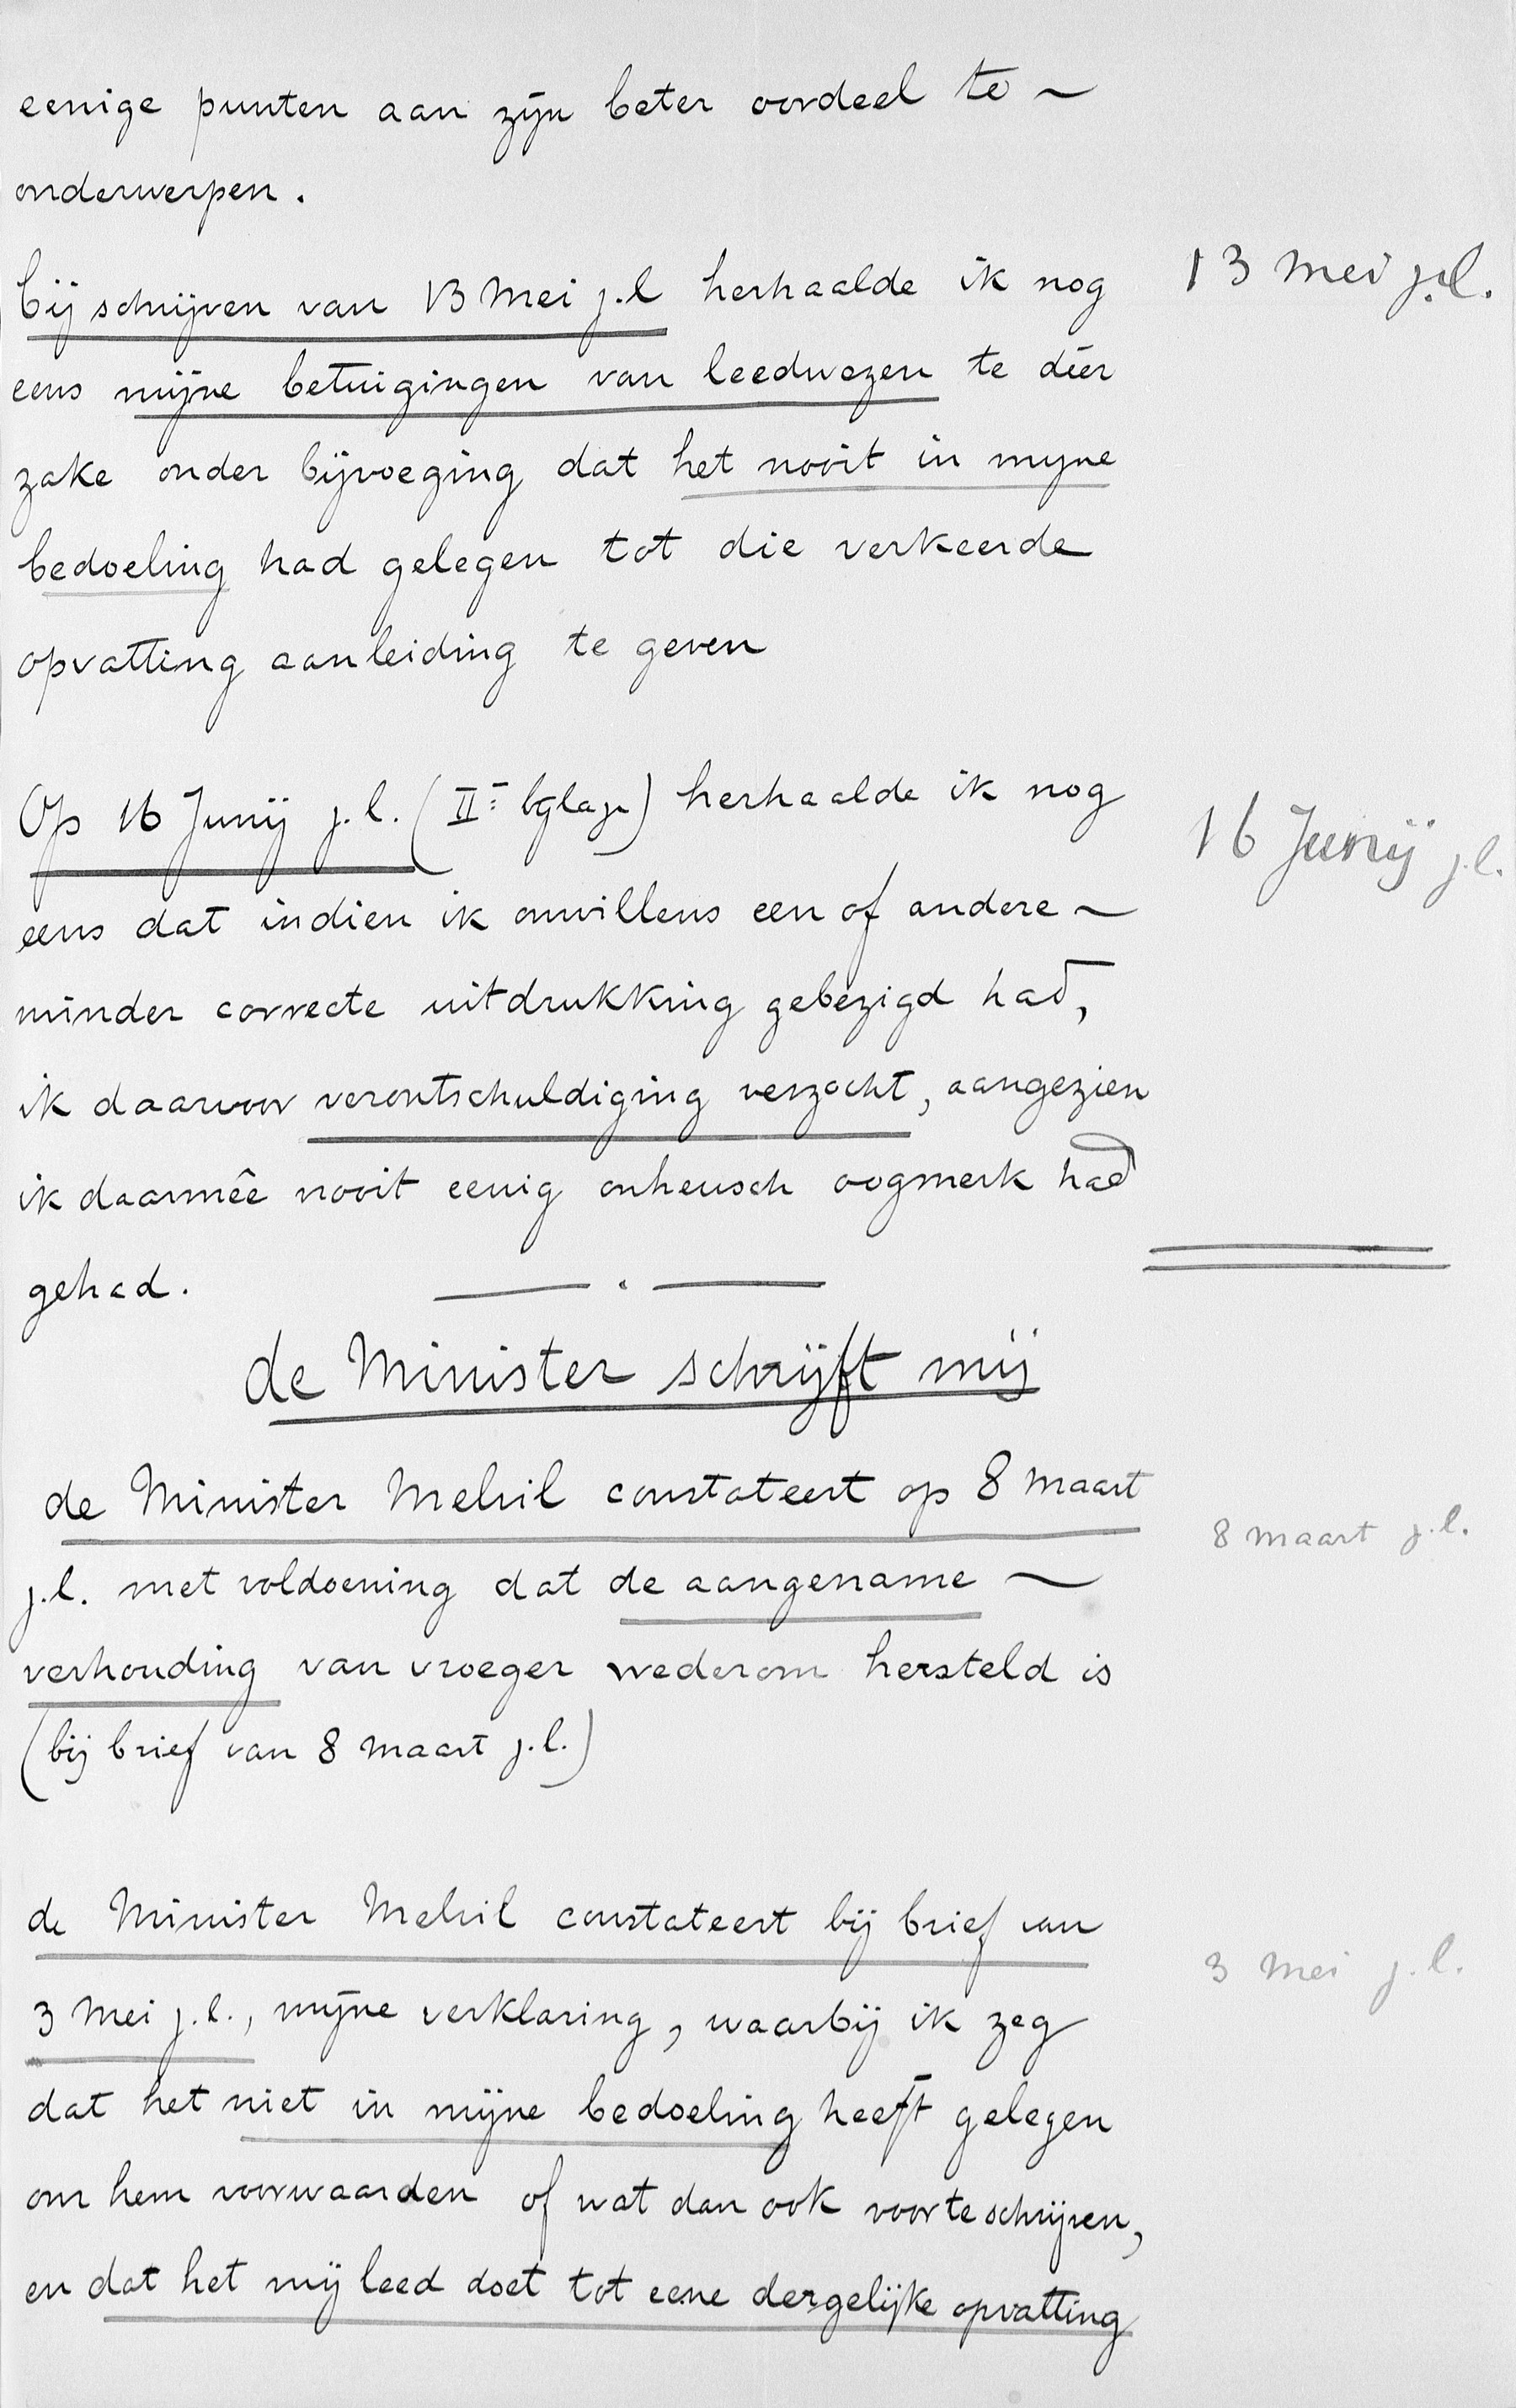 eenige punten aan zijn beter oordeel te ~
onderwerpen.
bij schrijven van 13 Mei j.l herhaalde ik nog
13 Mei j.l.
eens mijne betuigingen van leedwezen te dier
zake onder bijvoeging dat het nooit in mijne
bedoeling had gelegen tot die verkeerde
opvatting aanleiding te geven
Op 16 Junij j.l. (IIe bijlage) herhaalde ik nog
16 Junij j.l.
eens dat indien ik onwillens een of andere ~
minder correcte uitdrukking gebezigd had,
ik daarvoor verontschuldiging verzocht, aangezien
ik daarmêe nooit eenig onheusch oogmerk had
gehad.
de Minister schrijft mij
de Minister Melvil constateert op 8 Maart
8 Maart j.l.
j.l. met voldoening dat de aangename ~
verhouding van vroeger wederom hersteld is
(bij brief van 8 Maart j.l.)
de Minister Melvil constateert bij brief van
3 Mei j.l.
3 Mei j.l., mijne verklaring, waarbij ik zeg
dat het niet in mijne bedoeling heeft gelegen
om hem voorwaarden of wat dan ook voor te schrijven,
en dat het mij leed doet tot eene dergelijke opvatting